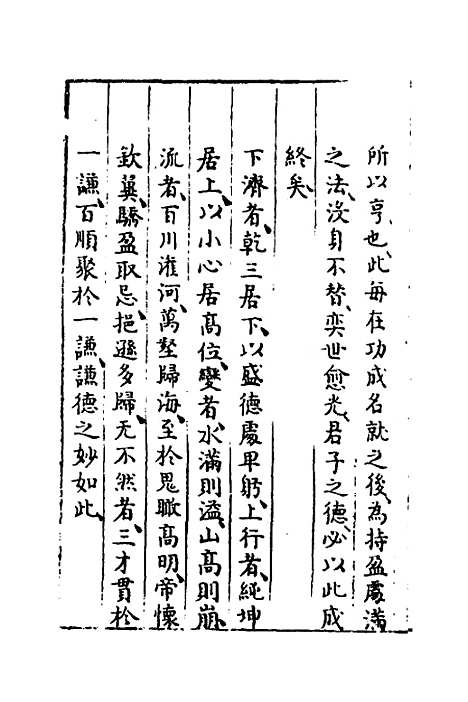 所以亨也、此每在功成名就之後、為持盈處滿
之法、沒身不替、奕世愈光、君子之德、必以此成
終矣、
下濟者、乾三居下、以盛德處卑躬、上行者、純坤
居上、以小心居高位、變者、水滿則溢、山高則崩、
流者、百川滙河、萬壑歸海、至於鬼瞰高明、帝懷
欽翼、驕盈取忌、挹遜多歸、无不然者、三才貫於
一謙、百順聚於一謙、謙德之妙如此、